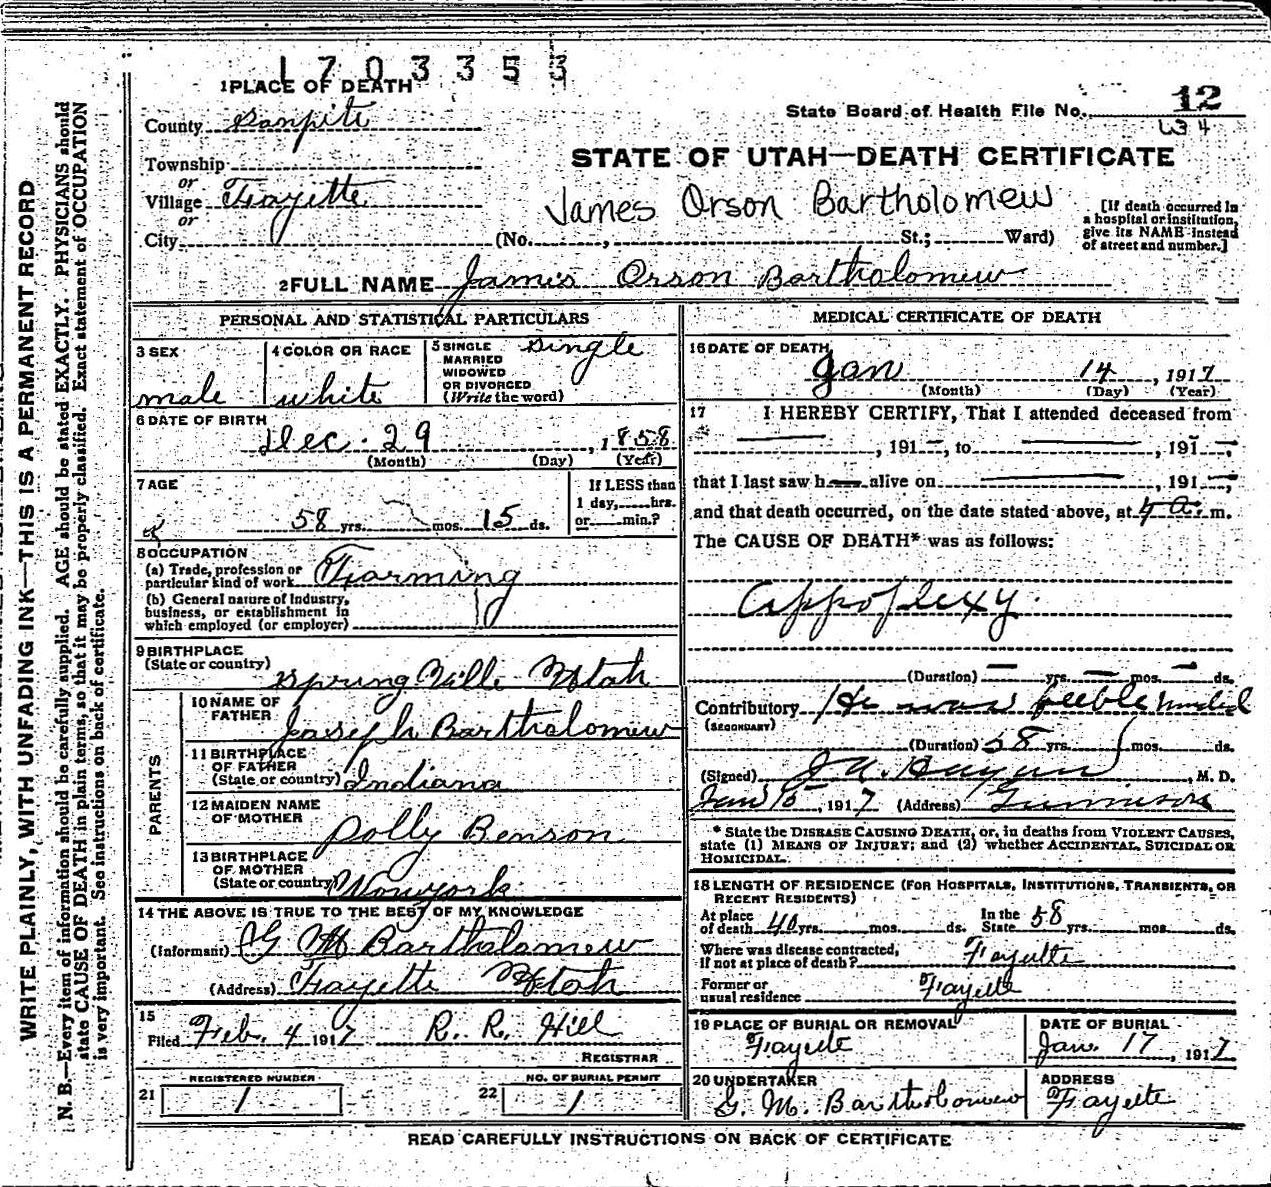 1703353
1 PLACE OF DEATH
12
State Board of Health File No.
County Sanpite
STATE OF UTAH—DEATH CERTIFICATE
Township
or
Village Fayette
James Orson Bartholomew
[If death occurred in a hospital or institution, give its NAME instead of street and number.]
or
City (No. , St.; Ward)
2 FULL NAME James Orson Bartholomew
PERSONAL AND STATISTICAL PARTICULARS
3 SEX
male
4 COLOR OR RACE
white
5 SINGLE MARRIED WIDOWED OR DIVORCED (Write the word)
Single
6 DATE OF BIRTH
Dec. 29, 1858
(Month) (Day) (Year)
7 AGE
58 yrs. mos. 15 ds.
If LESS than
1 day, hrs.
or min.?
8 OCCUPATION
(a) Trade, profession or
particular kind of work Farming
(b) General nature of industry,
business, or establishment in
which employed (or employer)
9 BIRTHPLACE
(State or country) Spring Ville Utah
PARENTS
10 NAME OF FATHER Joseph Bartholomew
11 BIRTHPLACE OF FATHER
(State or country) Indiana
12 MAIDEN NAME OF MOTHER Polly Benson
13 BIRTHPLACE OF MOTHER
(State or country)
14 THE ABOVE IS TRUE TO THE BEST OF MY KNOWLEDGE
(Informant) G M Bartholomew
(Address) Fayette Utah
15
Filed Feb. 4 1917 R. R. Hill
REGISTRAR
REGISTERED NUMBER
21 1
NO. OF BURIAL PERMIT
22 1
MEDICAL CERTIFICATE OF DEATH
16 DATE OF DEATH
Jan 14, 1917
(Month) (Day) (Year)
17 I HEREBY CERTIFY, That I attended deceased from
, 191 , to , 191 ,
that I last saw h alive on , 191 ,
and that death occurred, on the date stated above, at 4 a. m.
The CAUSE OF DEATH* was as follows:
Appoplexy.
(Duration) yrs. mos. ds.
Contributory He was feeble minded
(SECONDARY)
(Duration) 58 yrs. mos. ds.
(Signed) , M. D.
Jan 15, 1917 (Address) Gunnison
* State the DISEASE CAUSING DEATH, or, in deaths from VIOLENT CAUSES,
state (1) MEANS OF INJURY; and (2) whether ACCIDENTAL, SUICIDAL OR
HOMICIDAL.
18 LENGTH OF RESIDENCE (FOR HOSPITALS, INSTITUTIONS, TRANSIENTS, OR
RECENT RESIDENTS)
At place of death 40 yrs. mos. ds. In the State 58 yrs. mos. ds.
Where was disease contracted,
if not at place of death? Fayette
Former or
usual residence Fayette
19 PLACE OF BURIAL OR REMOVAL
Fayette
DATE OF BURIAL
Jan. 17, 1917
20 UNDERTAKER
G. M. Bartholomew
ADDRESS
Fayette
READ CAREFULLY INSTRUCTIONS ON BACK OF CERTIFICATE
WRITE PLAINLY, WITH UNFADING INK—THIS IS A PERMANENT RECORD
N. B.—Every item of information should be carefully supplied. AGE should be stated EXACTLY. PHYSICIANS should
state CAUSE OF DEATH in plain terms, so that it may be properly classified. Exact statement of OCCUPATION
is very important. See instructions on back of certificate.